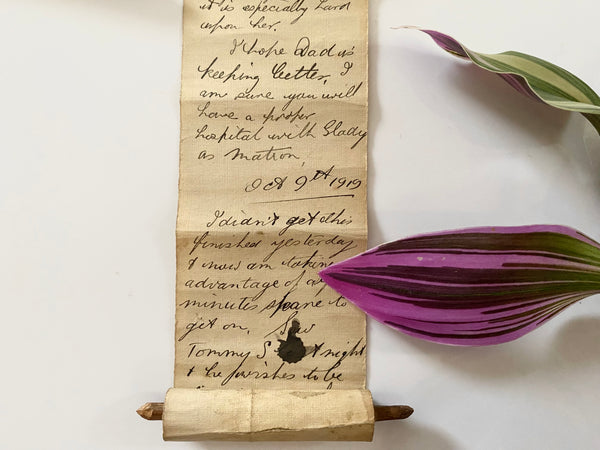 it is especially hard
upon her.
I hope Dad is
keeping better. I
am sure you will
have a proper
hospital with Glady
as matron.
Oct 9th 1919
I didn't get this
finished yesterday
& now am taking
advantage of a
minutes spare to
get on. Saw
Tommy S t night
& he wishes to be